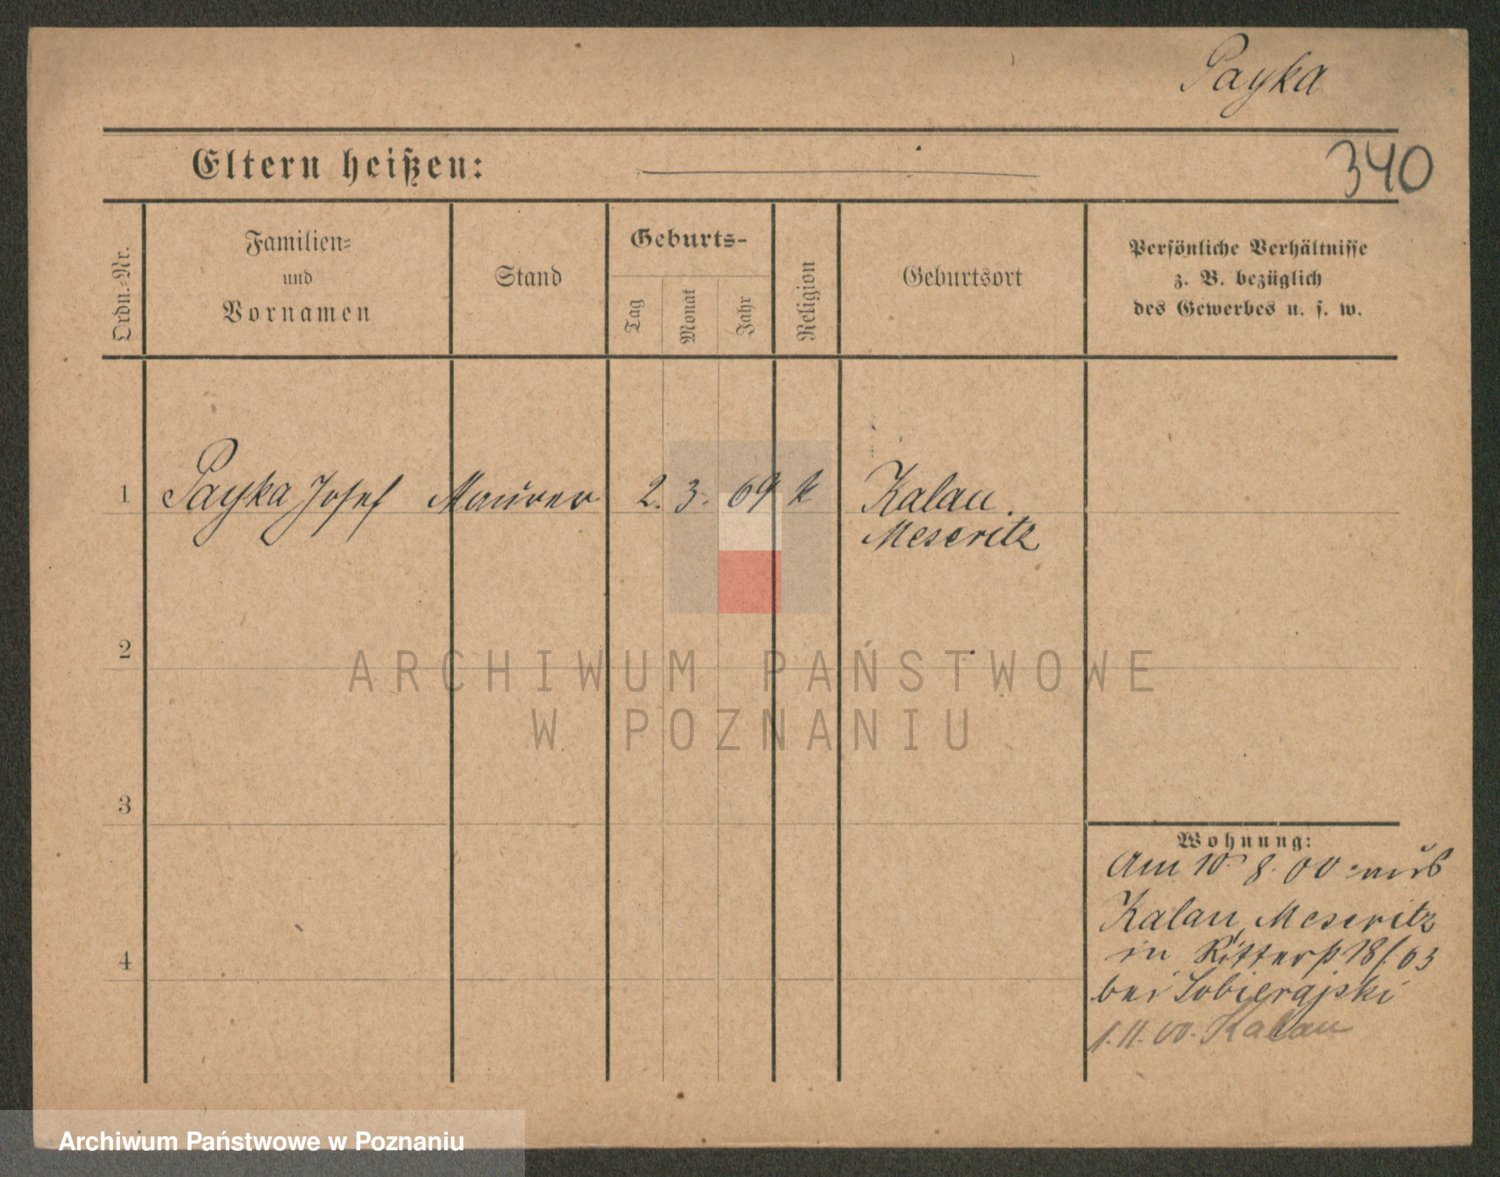 Payka
Eltern heißen:
340
Ordn.-Nr.
Familien-
und
Vornamen
Stand
Geburts-
Tag
Monat
Jahr
Religion
Geburtsort
Persönliche Verhältnisse
z. B. bezüglich
des Gewerbes u. s. w.
1 Payka Josef Maurer 2. 3. 69 k Kalau.
Meseritz
2
ARCHIWUM PAŃSTWOWE
W POZNANIU
3
4
Wohnung:
Am 10. 8. 00 aus
Kalau, Meseritz
in Ritterp 18/
bei Sobierajski
1.11.00. Kalau
Archiwum Państwowe w Poznaniu